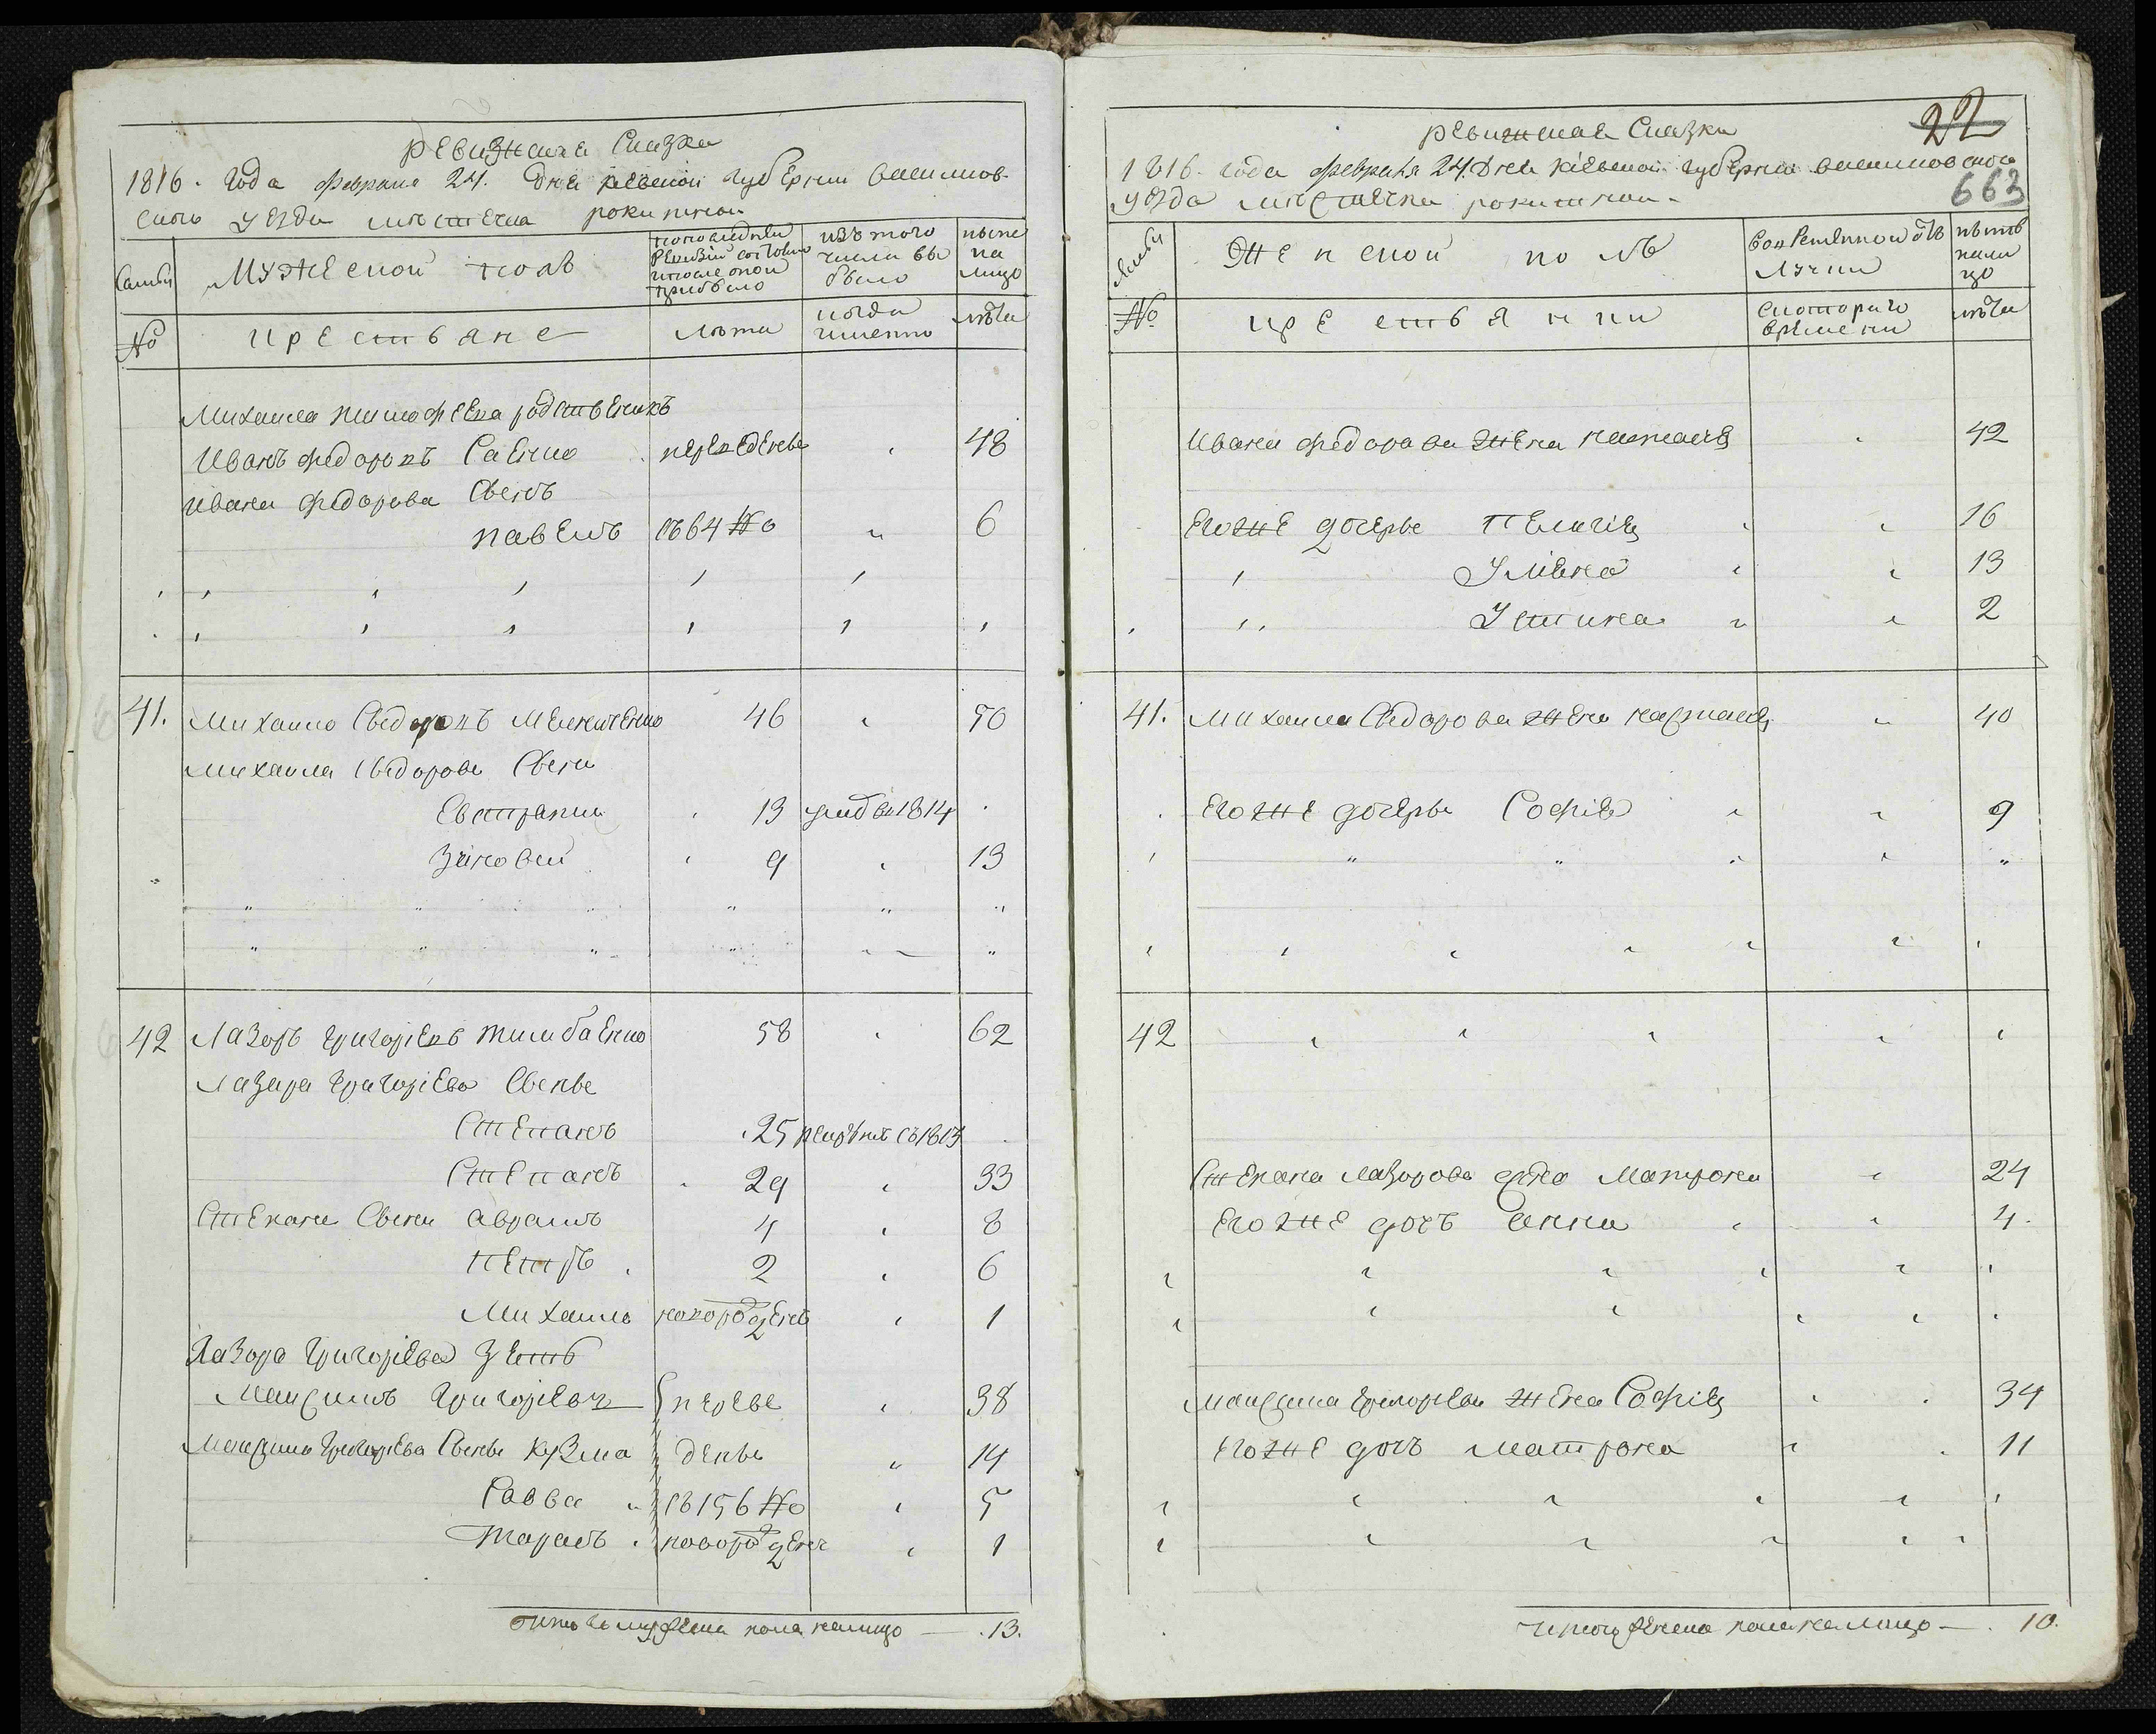 Ревижская Сказка
1816. года февраля 24. дня киевской губернии васильков-
ского уезда местечка рокитной
Семьи
Мужеской полъ
по последней ревизии состояло и после оной прибыло
изъ того числа выбыло
ныне на лицо
№
крестьяне
лета
когда именно
лета
Михаила тимофеева родственикъ
Иванъ федоровъ Саенко переведенъ 48
Ивана федорова Сынъ
павелъ съ 64 № 6
41. Михайло Сидоровъ Мелниченко 46 50
Михаила Сидорова Сыни
Евстратий 13 1814
Зѣновей 9 13
42 Лазоръ григориевъ 58 62
Лазара григориева Сыны
Степанъ 25 1813
Степанъ 29 33
Степана Сыни аврамъ 4 8
петръ 2 6
Михаило новорожденъ 1
Лазора григориева зеть
Максимъ григориевъ переве 38
Максима григориева Сыны кузма дены 14
Савва съ 156 № 5
тарасъ новорожденъ 1
Итого мужеска пола налицо — 13.
22
663
ревижская Сказка
1816. года февраля 24. дня киевской губернии васильковского
уезда местечка рокитной
Семьи
Женской полъ
во временной отлучки
ныне налицо
№
крестьянки
с которого времени
лета
Ивана федорова жена настасия 42
Егоже дочеры Пелагия 16
Улiяна 13
Устина 2
41. Михаила Сидорова жена настасия 40
Егоже дочеры София 9
42
Степана лазорова жена Матрона 24
Егоже дочъ анна 4
Максима григориева жена София 34
Егоже дочъ матрона 11
Итого женска пола налицо — 10.